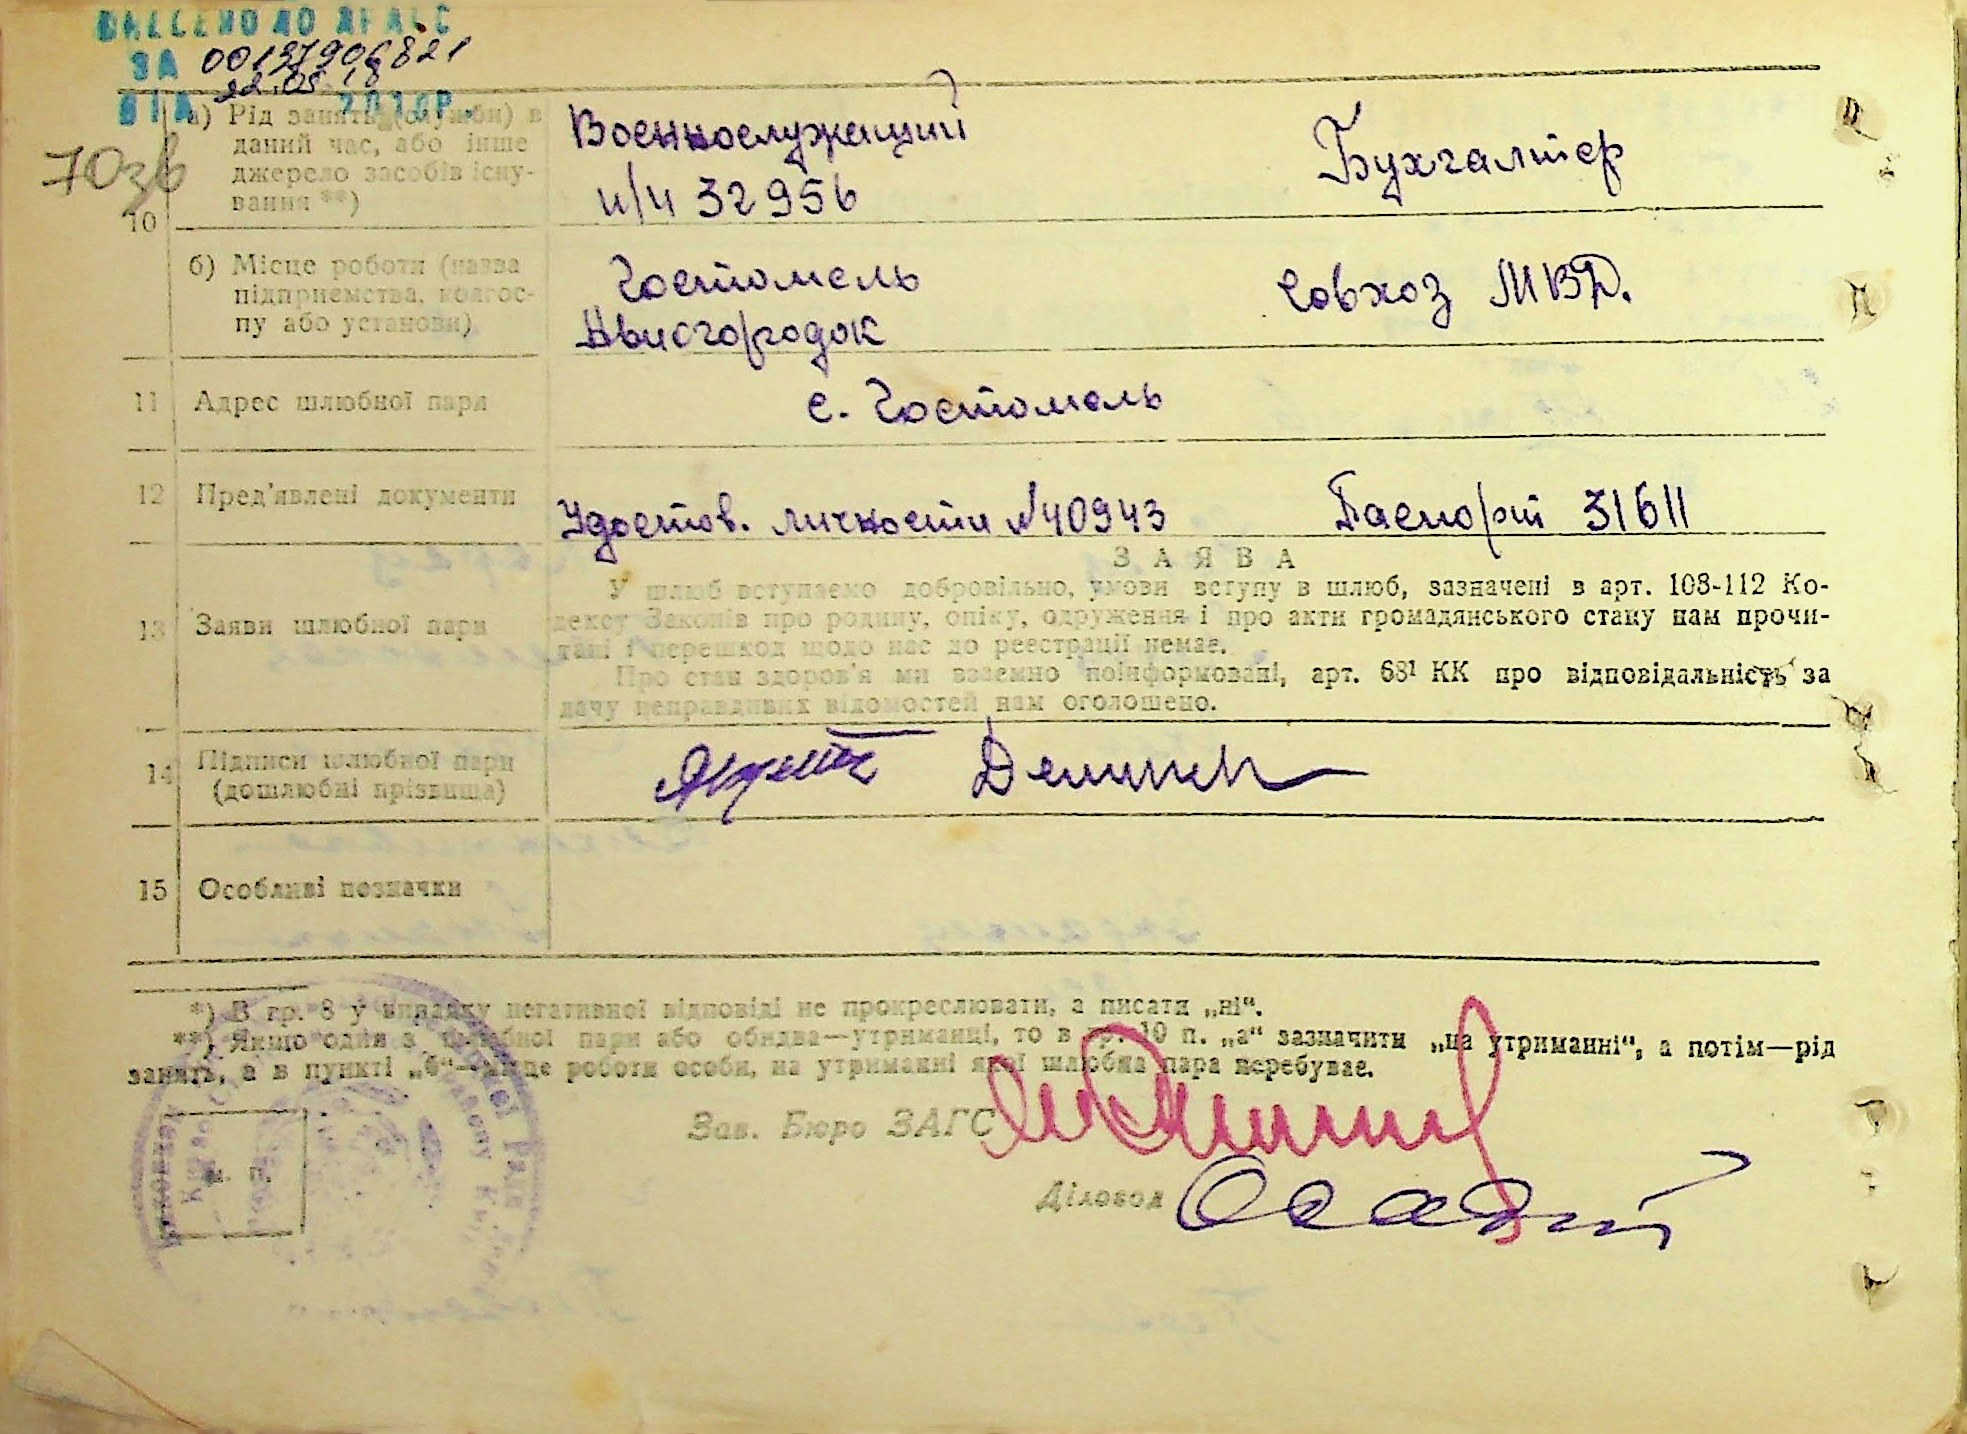 ВНЕСЕНО ДО ДРАГС
ЗА 00137906821
ВІД 22.05.18 2018р.
70зв
10
а) Рід занять (служби) в
даний час, або інше
джерело засобів існу-
вання **)
Военнослужащий
и/ч 32956
Бухгалтер
б) Місце роботи (назва
підприємства, колгос-
пу або установи)
Гостомель
Авиогородок
Совхоз МВД.
11 Адрес шлюбної пари
с. Гостомель
12 Пред'явлені документи
Удостов. личности №40943 Паспорт 31611
ЗАЯВА
13 Заяви шлюбної пари
У шлюб вступаємо добровільно, умови вступу в шлюб, зазначені в арт. 108-112 Ко-
дексу Законів про родину, опіку, одруження і про акти громадянського стану нам прочи-
тані і перешкод щодо нас до реєстрації немає.
Про стан здоров'я ми взаємно поінформовані, арт. 68¹ КК про відповідальність за
дачу неправдивих відомостей нам оголошено.
14 Підписи шлюбної пари
(дошлюбні прізвища)
15 Особливі позначки
*) В гр. 8 у випадку негативної відповіді не прокреслювати, а писати „ні“.
**) Якщо один з шлюбної пари або обидва—утриманці, то в гр. 10 п. „а“ зазначити „на утриманні“, а потім—рід
занять, а в пункті „б“—місце роботи особи, на утриманні якої шлюбна пара перебуває.
м. п.
Зав. Бюро ЗАГС
Діловод